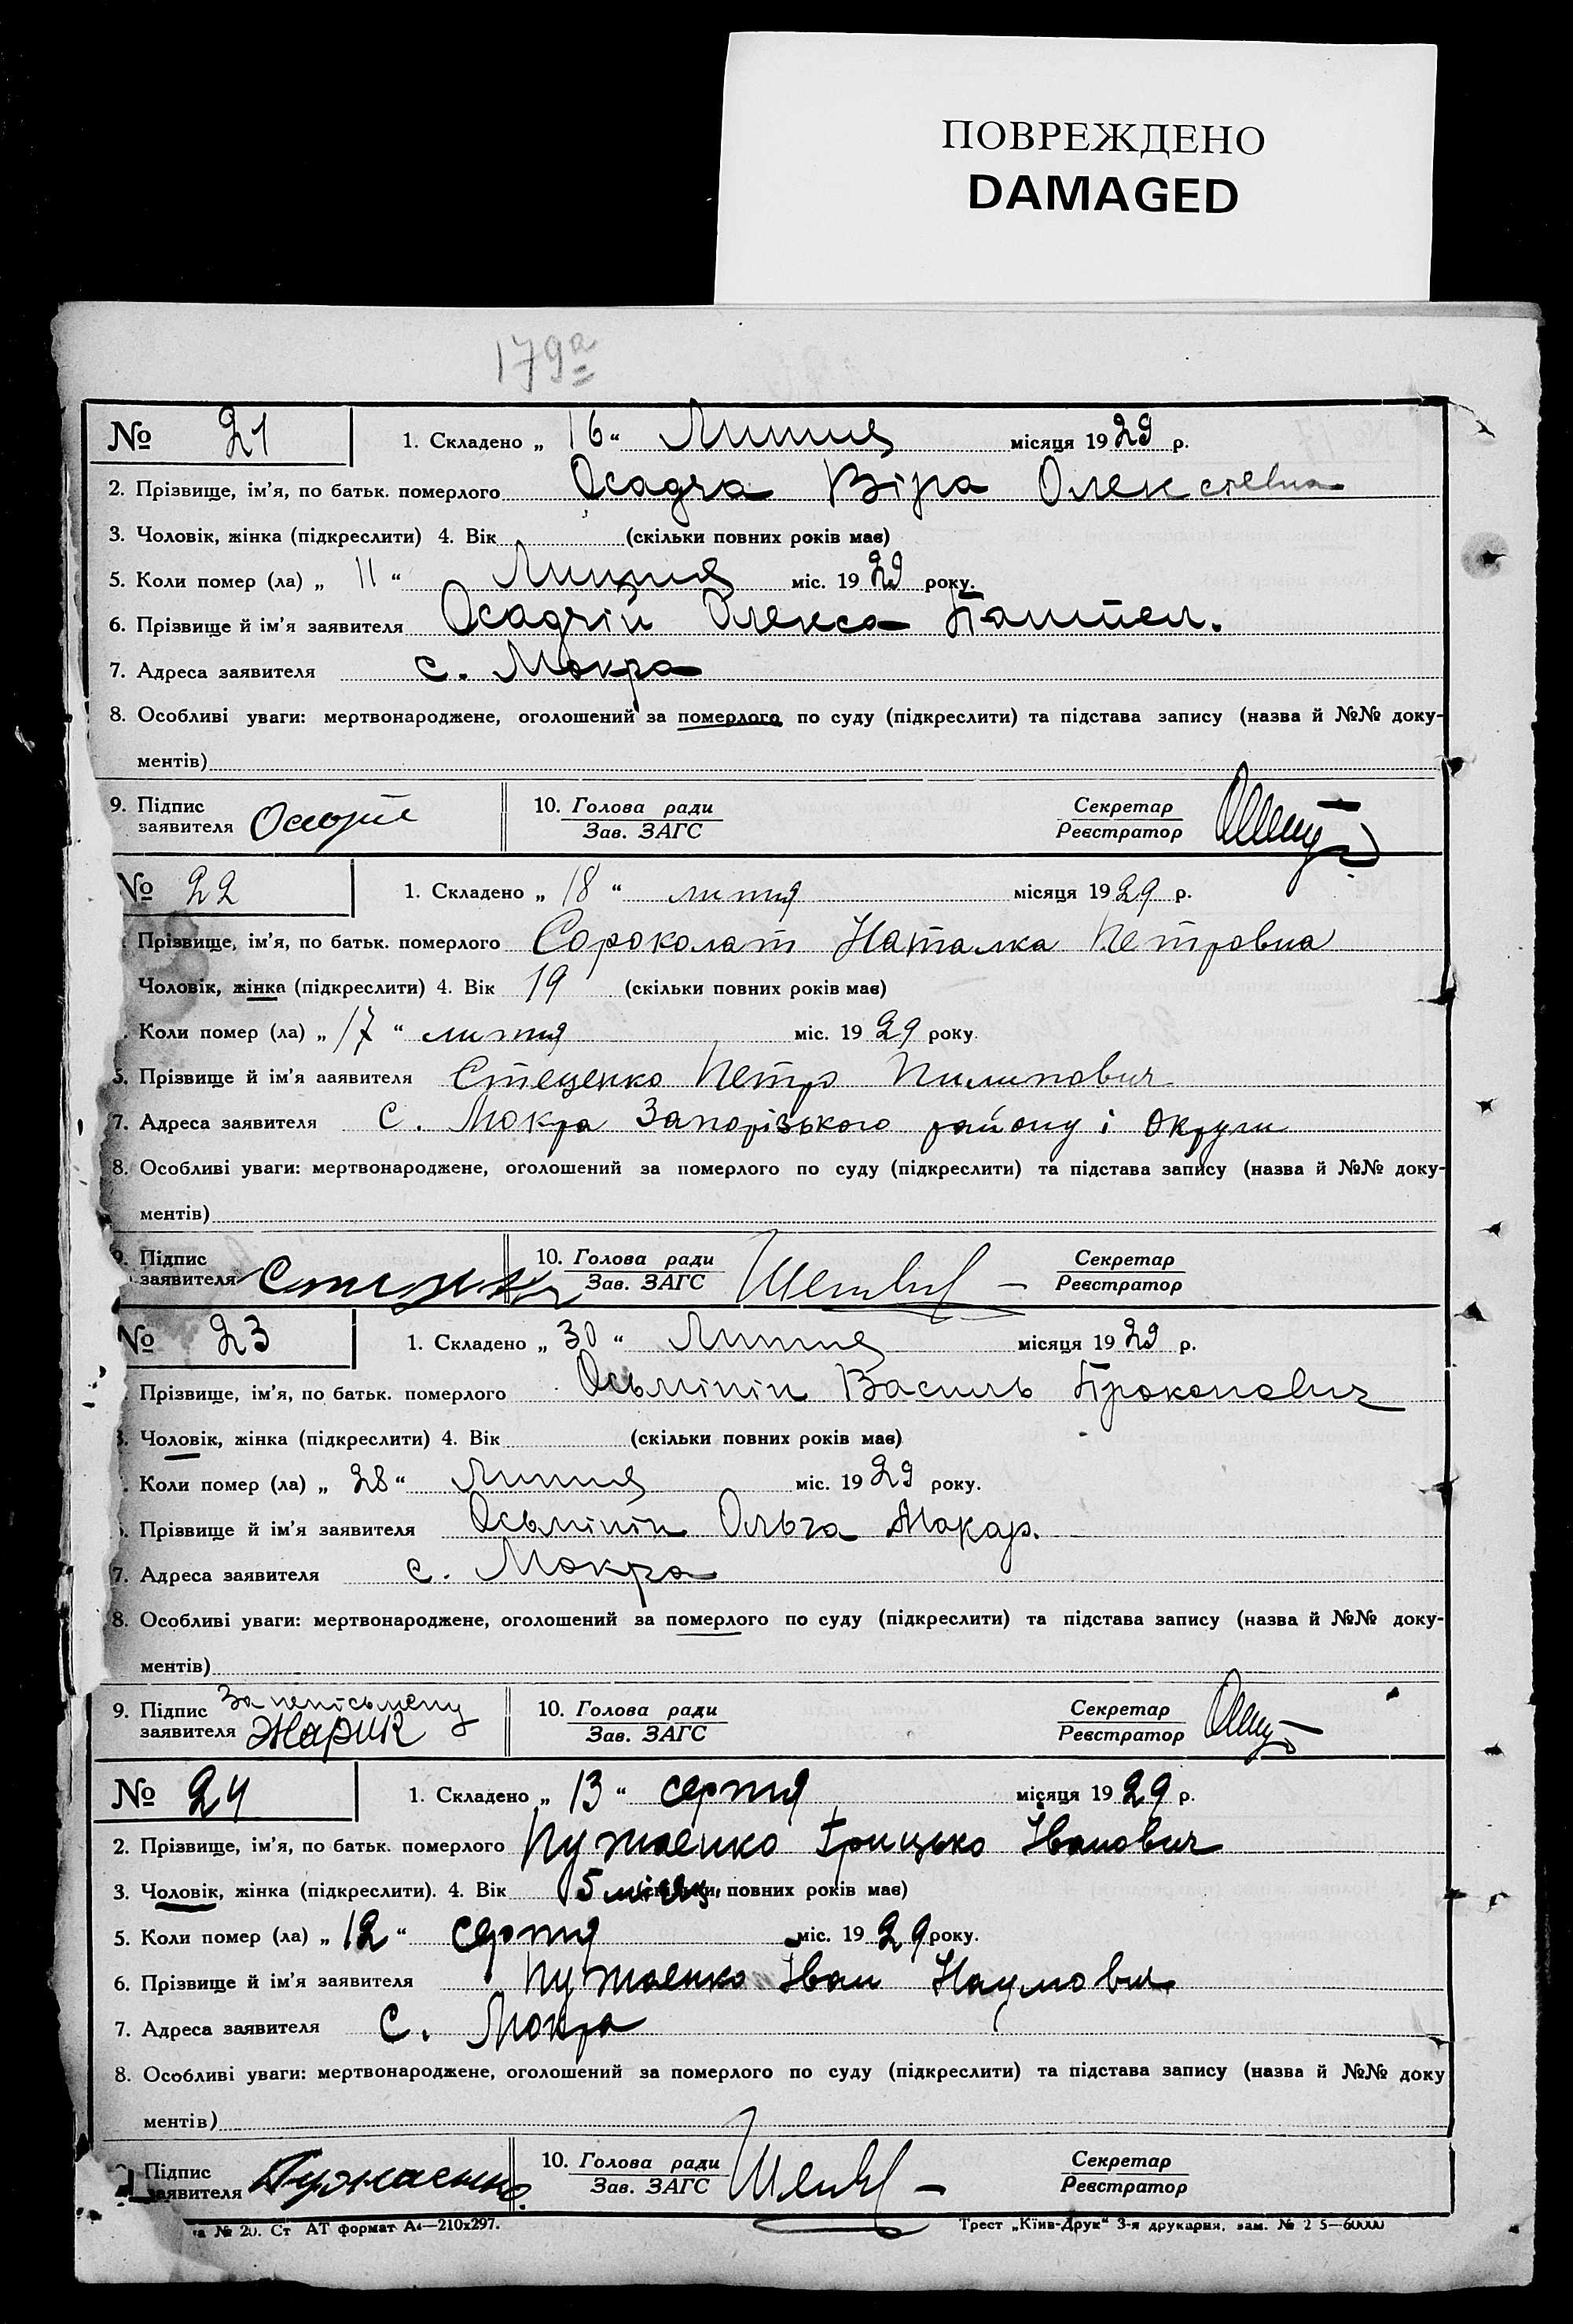 ПОВРЕЖДЕНО
DAMAGED
179а
№ 21 1. Складено „ 16 “ Липця місяця 1929 р.
2. Прізвище, ім’я, по батьк. померлого Осадча Віра Олексєевна
3. Чоловік, жінка (підкреслити) 4. Вік (скільки повних років має)
5. Коли помер (ла) „ 11 “ Липця міс. 1929 року.
6. Прізвище й ім’я заявителя Осадчій Олекса
7. Адреса заявителя с. Мокра
8. Особливі уваги: мертвонароджене, оголошений за померлого по суду (підкреслити) та підстава запису (назва й №№ доку-
ментів)
9. Підпис заявителя 10. Голова ради Зав. ЗАГС Секретар Реєстратор
№ 22 1. Складено „ 18 “ липня місяця 1929 р.
Прізвище, ім’я, по батьк. померлого Сороколат Наталка Петровна
Чоловік, жінка (підкреслити) 4. Вік 19 (скільки повних років має)
Коли помер (ла) „ 17 “ липня міс. 1929 року.
6. Прізвище й ім’я ааявителя Стеценко Петро Пилипович
7. Адреса заявителя с. Мокра Запорізького району і Округи
8. Особливі уваги: мертвонароджене, оголошений за померлого по суду (підкреслити) та підстава запису (назва й №№ доку-
ментів)
9. Підпис заявителя 10. Голова ради Зав. ЗАГС Секретар Реєстратор
№ 23 1. Складено „ 30 “ Липця місяця 1929 р.
Прізвище, ім’я, по батьк. померлого Осьмінін Василь Прокопович
3. Чоловік, жінка (підкреслити) 4. Вік (скільки повних років має)
Коли помер (ла) „ 28 “ Липця міс. 1929 року.
Прізвище й ім’я заявителя Осьмінін Ольга Макар.
7. Адреса заявителя с. Мокра
8. Особливі уваги: мертвонароджене, оголошений за померлого по суду (підкреслити) та підстава запису (назва й №№ доку-
ментів)
9. Підпис заявителя За непісьмену Жарик 10. Голова ради Зав. ЗАГС Секретар Реєстратор
№ 24 1. Складено „ 13 “ серпня місяця 1929 р.
2. Прізвище, ім’я, по батьк. померлого Пужаенко Грицько Іванович
3. Чоловік, жінка (підкреслити). 4. Вік 5 місяц. (скільки повних років має)
5. Коли помер (ла) „ 12 “ серпня міс. 1929 року.
6. Прізвище й ім’я заявителя Пужаенко Іван Наумович
7. Адреса заявителя с. Мокра
8. Особливі уваги: мертвонароджене, оголошений за померлого по суду (підкреслити) та підстава запису (назва й №№ доку
ментів)
Підпис заявителя Пужаенко 10. Голова ради Зав. ЗАГС Секретар Реєстратор
№ 20. Ст АТ формат А4—210х297. Трест „Київ-Друк“ 3-я друкарня, зам. №